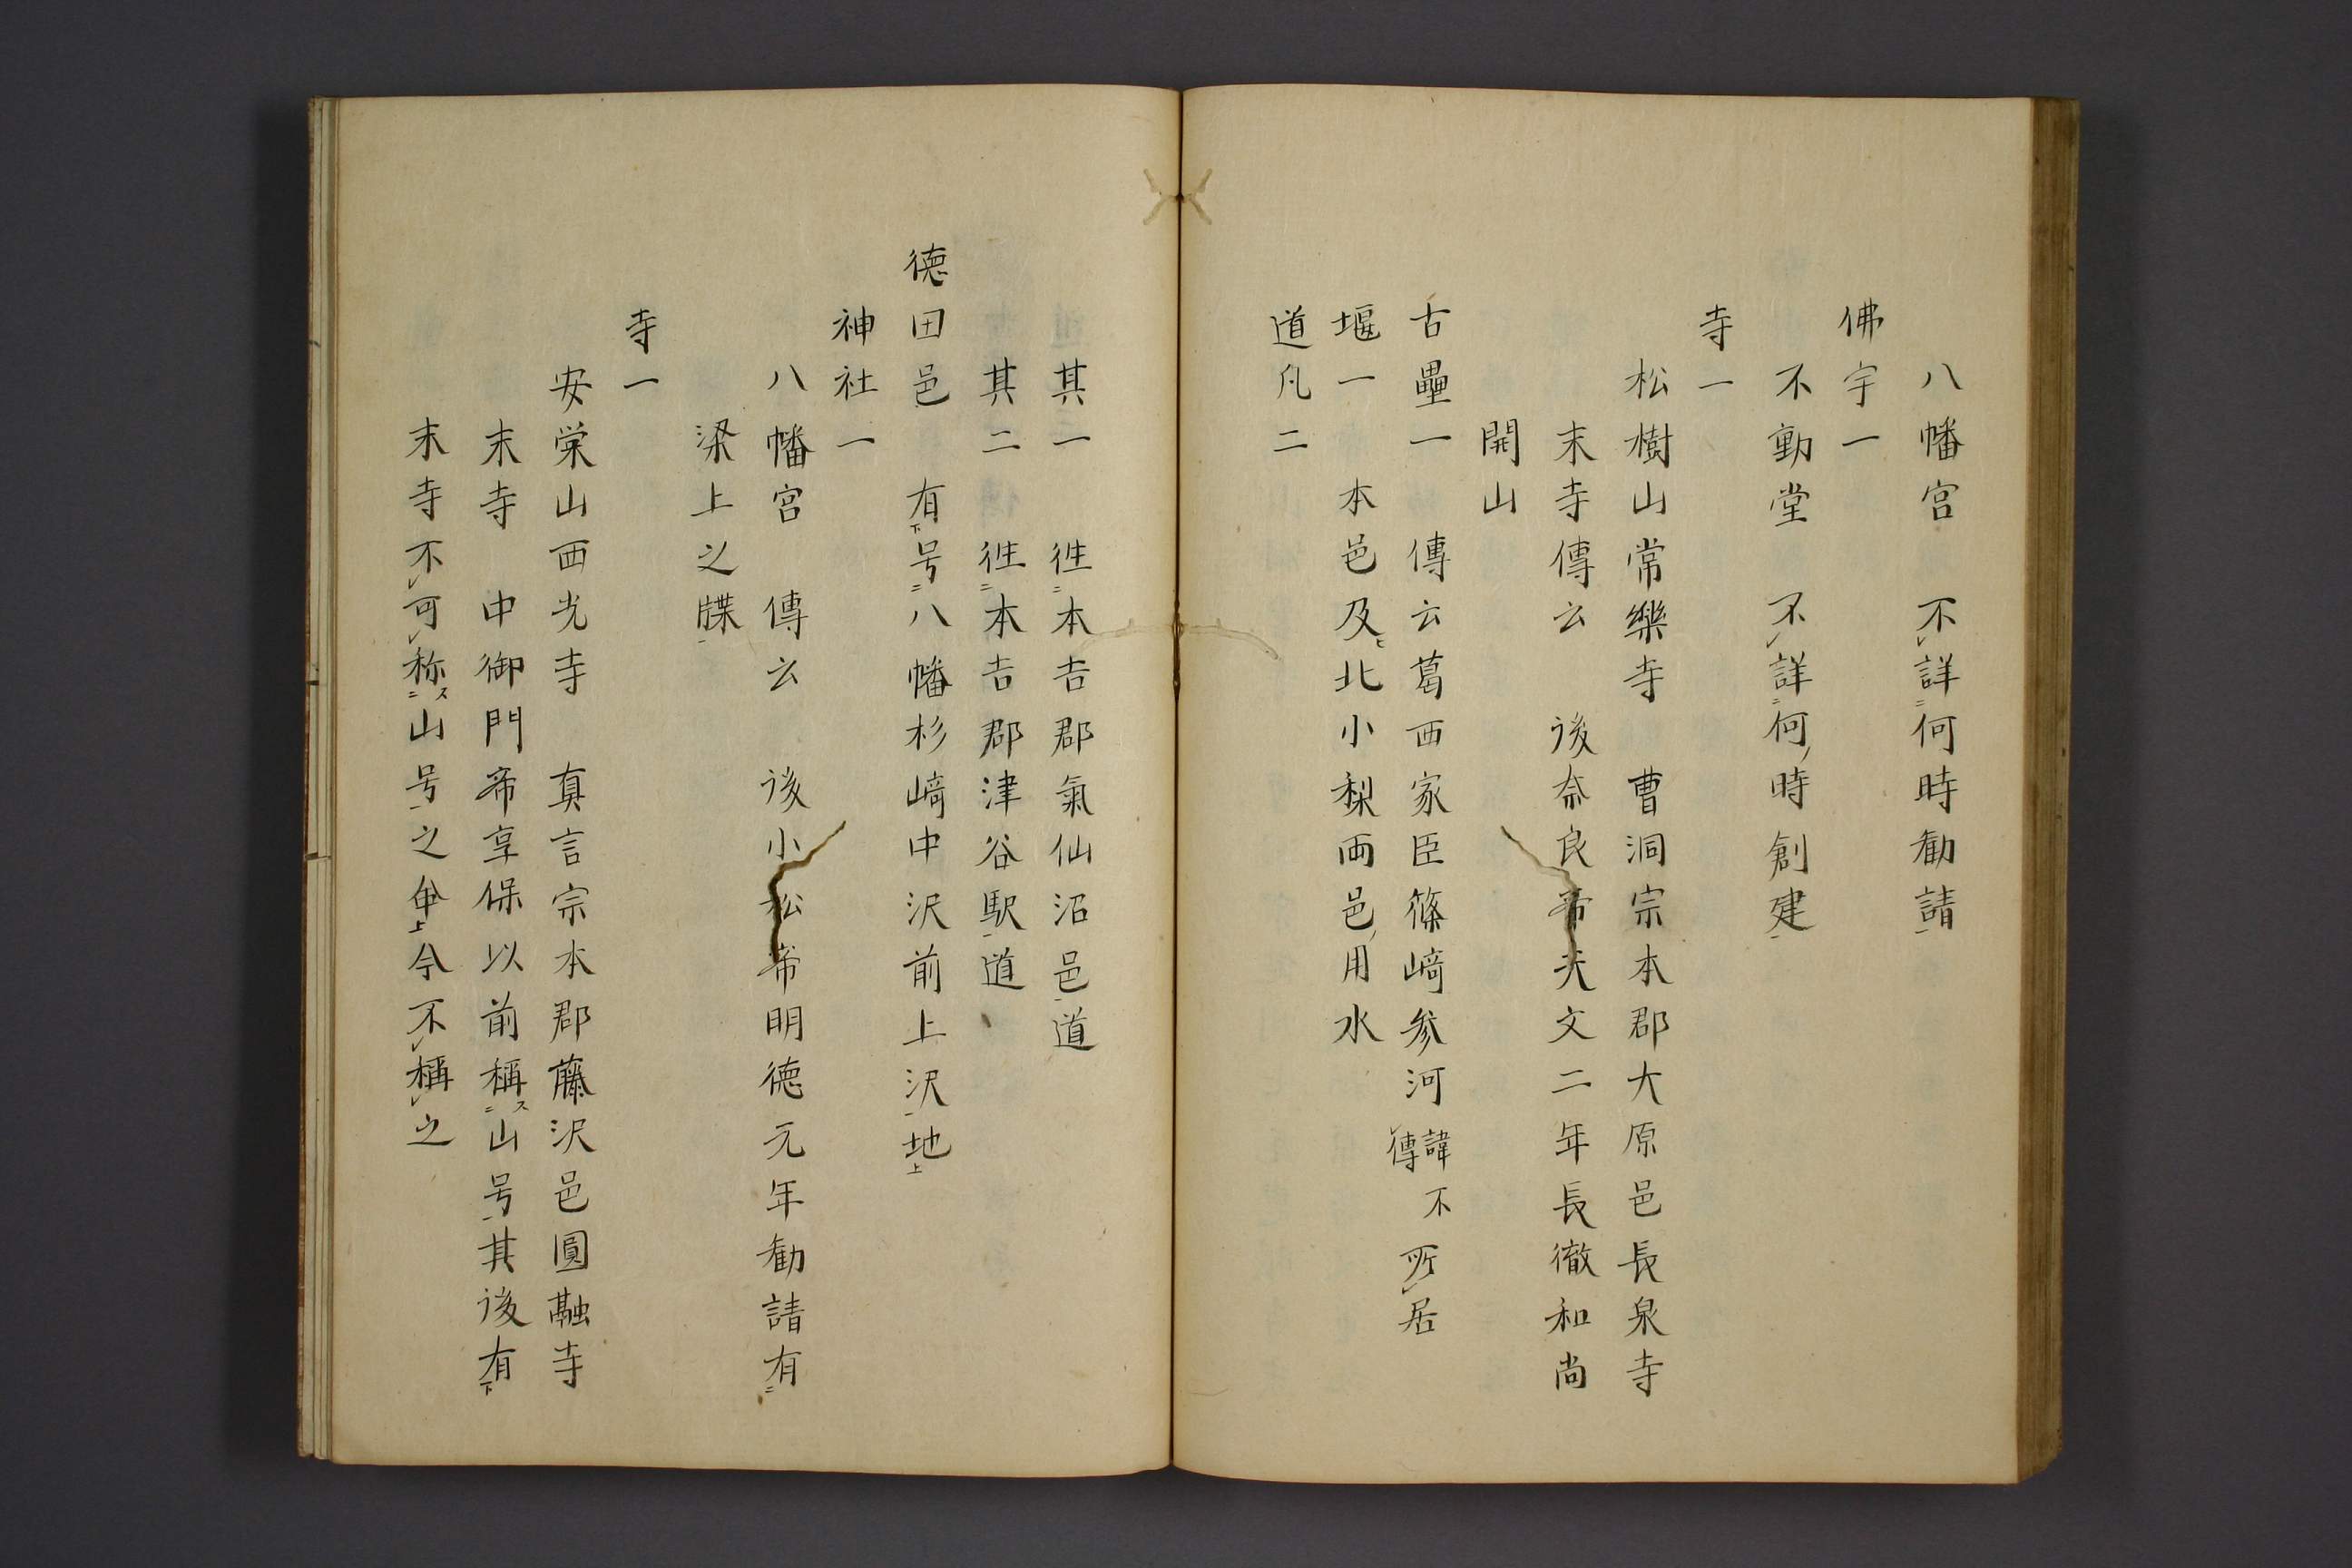 八幡宮　不㆑詳㆓何時勧請㆒
佛宇一
不動堂　不㆑詳㆓何ノ時創建㆒
寺一
松樹山常樂寺　曹洞宗本郡大原邑長泉寺
末寺傳云　後奈良帝天文二年長徹和尚
開山
古壘一　傳云葛西家臣篠﨑参河諱不㆑傳所㆑居
堰一　本邑及ヒ北小梨両邑ノ用水
道凡二
其一　徃㆓本吉郡氣仙沼邑㆒道
其二　徃㆓本吉郡津谷駅㆒道
徳田邑　有㆘号㆓八幡杉﨑中沢前上沢㆒地㆖
神社一
八幡宮　傳云　後小松帝明徳元年勧請有㆓
梁上之牒㆒
寺一
安栄山西光寺　真言宗本郡藤沢邑圓融寺
末寺　中御門帝享保以前稱㆓ス山号㆒其後有㆘
末寺不㆑可㆑称㆓ス山号㆒之命㆖今不㆑稱㆑之